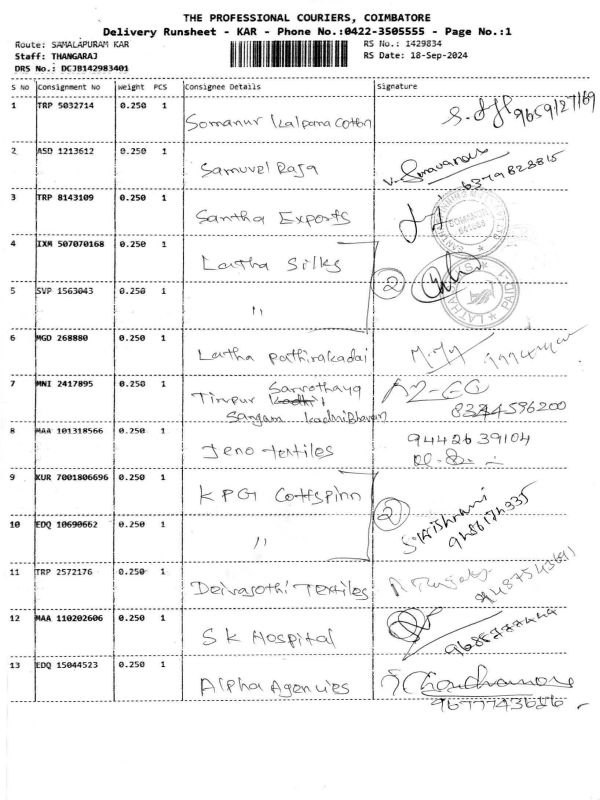 THE PROFESSIONAL COURIERS, COIMBATORE
Delivery Runsheet - KAR - Phone No.:0422-3505555 - Page No.:1
Route: SAMALAPURAM KAR
RS No.: 1429834
Staff: THANGARAJ
RS Date: 18-Sep-2024
DRS No.: DCJB142983401
S No Consignment No Weight PCS Consignee Details Signature
1 TRP 5032714 0.250 1 Somanur Kalpana Cotton 9659127169
2 ASD 1213612 0.250 1 Samuvel Raja V. Saravanan
6379828815
3 TRP 8143109 0.250 1 Santha Exports
4 IXM 507070168 0.250 1 Latha Silks 2
5 SVP 1563043 0.250 1 "
6 MGD 268880 0.250 1 Latha pathirakadai
7 MNI 2417895 0.250 1 Tirupur Sarvothaya
Sangam KadhiBhavan 8344596200
8 MAA 101318566 0.250 1 Jeno Textiles 9442639104
9 KUR 7001806696 0.250 1 KPG Cottspinn 2
10 EDQ 10690662 0.250 1 " 9486174335
11 TRP 2572176 0.250 1 Deivarathi Textiles 9487543691
12 MAA 110202606 0.250 1 S K Hospital
13 EDQ 15044523 0.250 1 Alpha Agencies
9677743656